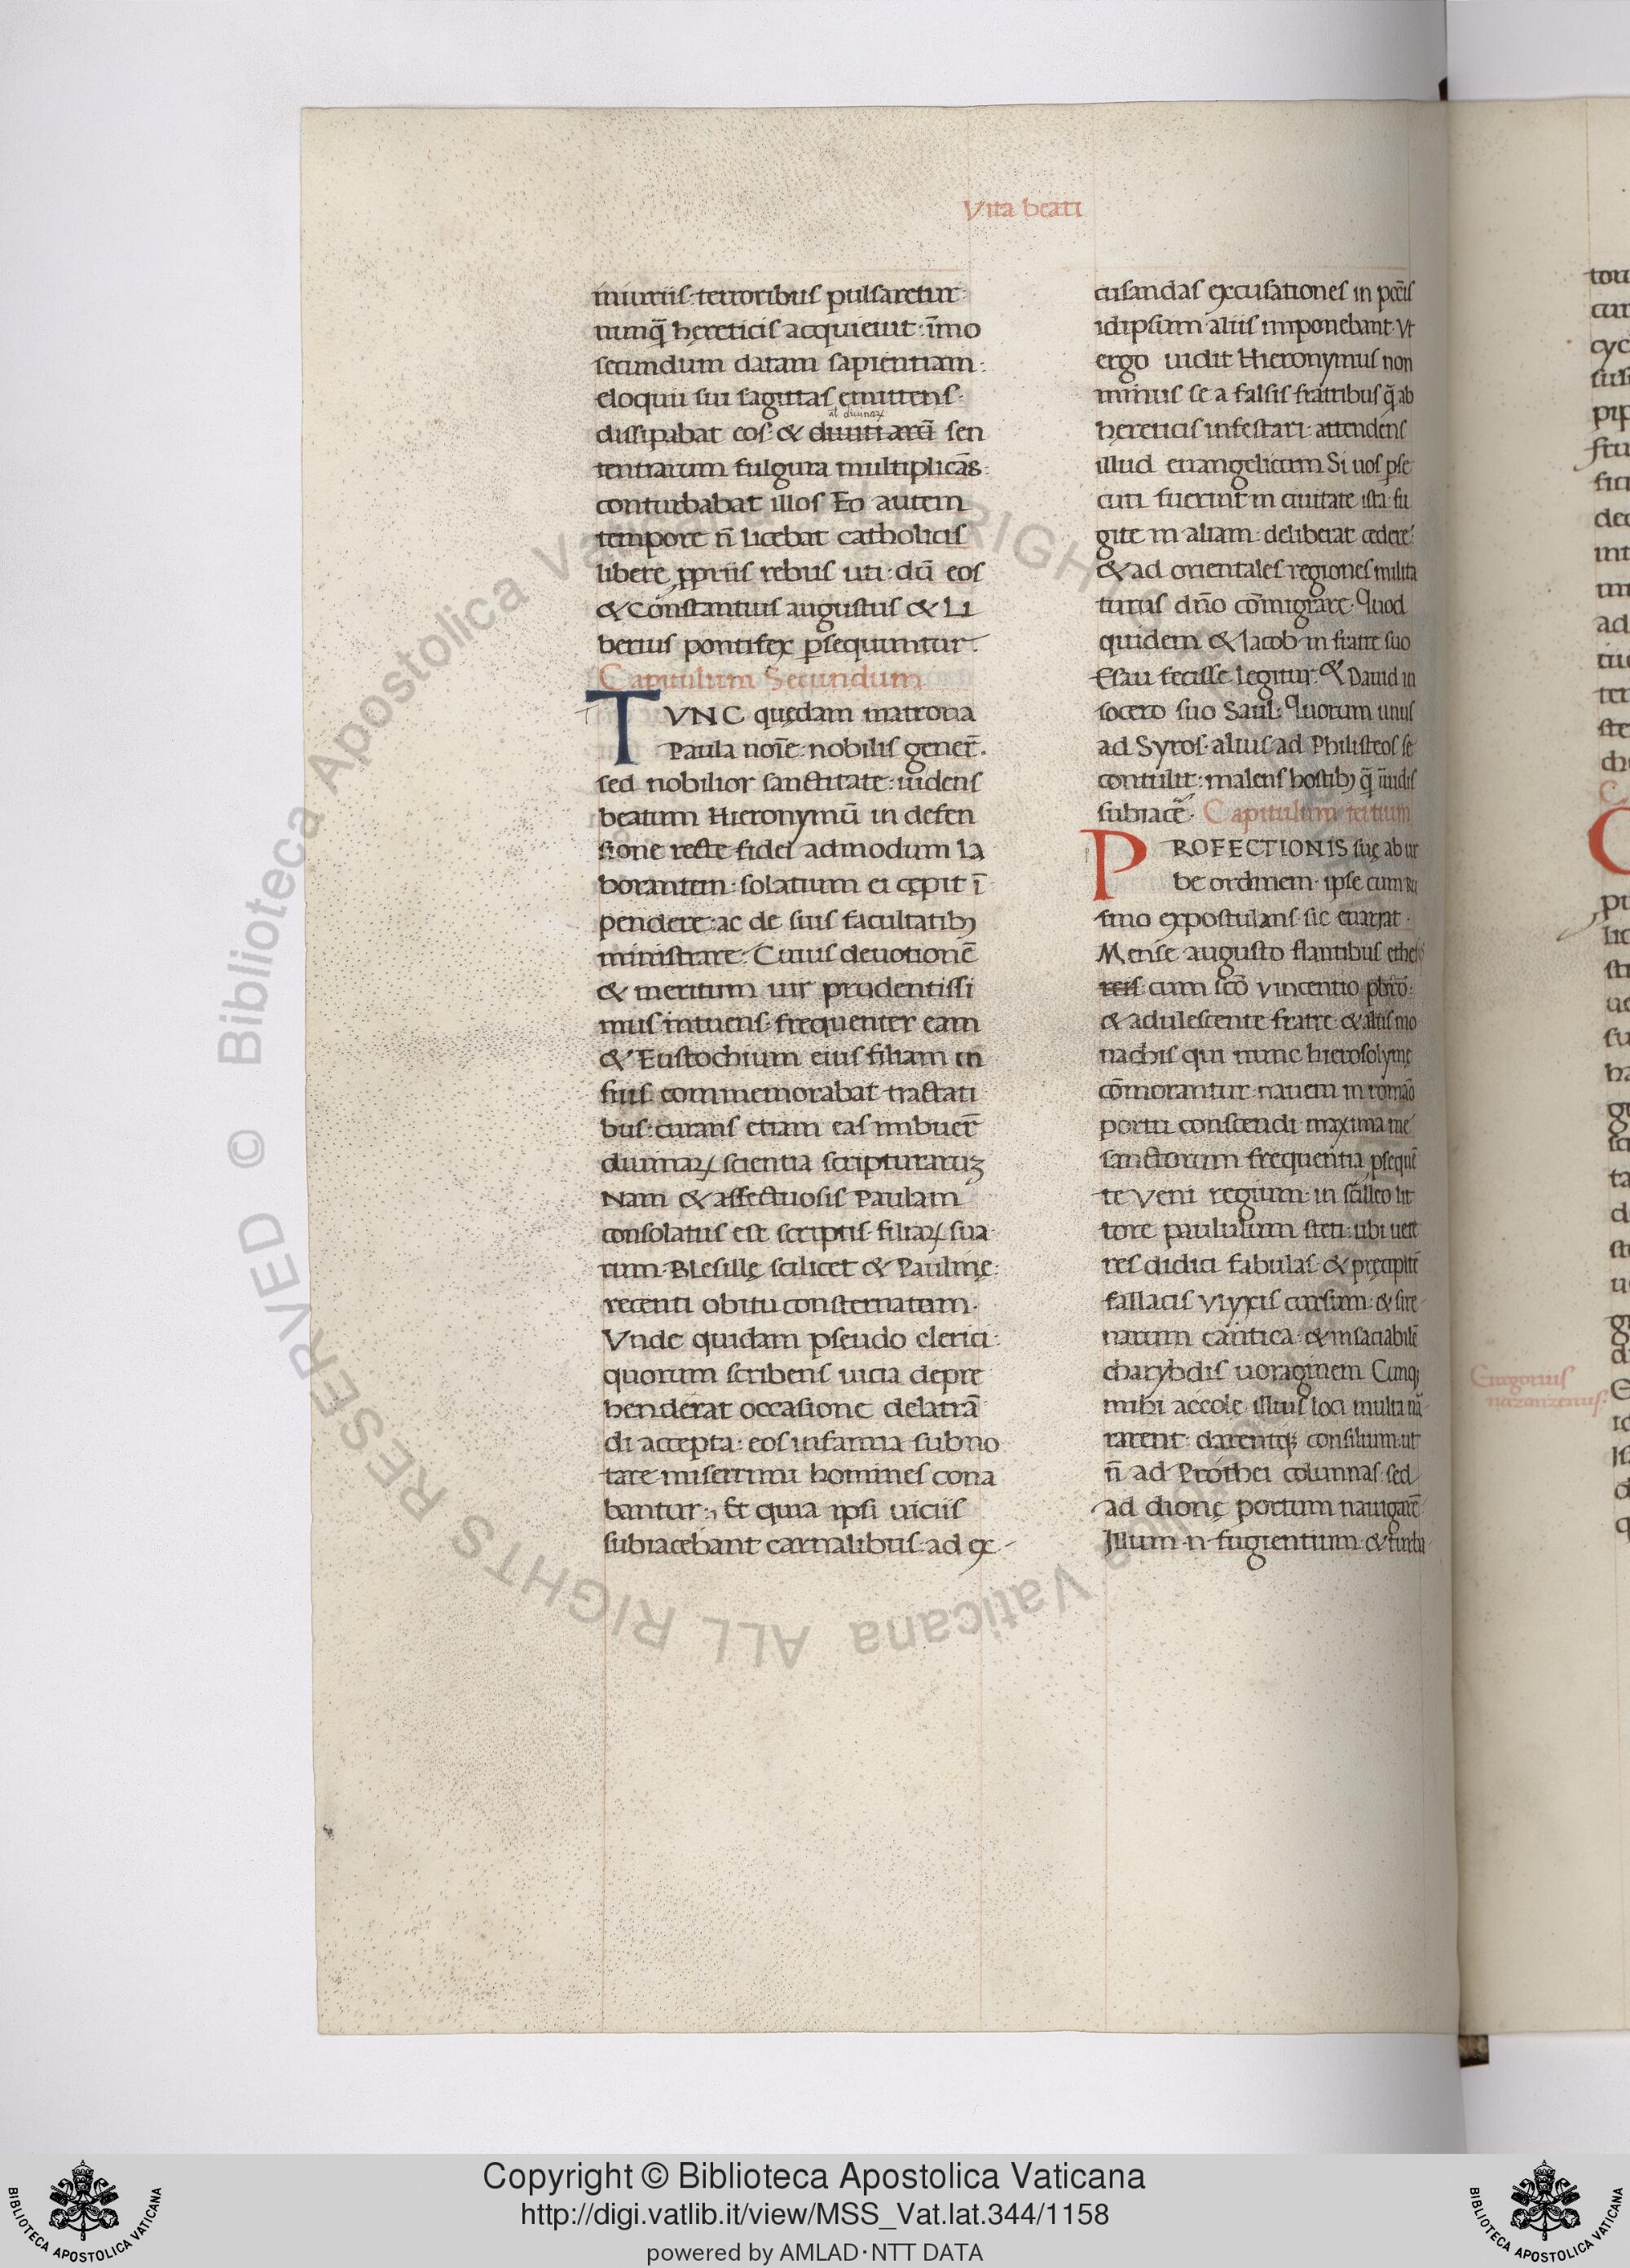 Vita beati
iniuriis·terroribus pulsaretur·
nunq̃ hęreticis acquieuit: ĩmo
secundum datam sapientiam:
eloquii sui sagittas emittens·
al diuinaꝝ
dissipabat eos: & diuitiarũ sen
tentiarum fulgura multiplicãs:
conturbabat illos Eo autem
tempore ñ licebat catholicis
libere ꝓpriis rebus uti: dũ eos
& Constantius augustus & Li
berius pontifex ꝑsequuntur·
Capitulum Secundum
TVNC quędam matrona
Paula noĩe: nobilis gener̃·
sed nobilior sanctitate: uidens
beatum Hieronymũ in defen
sione recte fidei admodum la
borantem: solatium ei cępit ĩ
pendere: ac de suis facultatibꝫ
ministrare: Cuius deuotionẽ
& meritum uir prudentissi
mus intuens: frequenter eam
& Eustochium eius filiam in
suis commemorabat tractati
bus: curans etiam eas imbuer̃
diuinaꝝ scientia scripturaruꝫ
Nam & affectuosis Paulam
consolatus est scriptis· filiaꝝ sua
rum· Blesillę scilicet & Paulinę:
recenti obitu consternatam·
Vnde quidam pseudo clerici:
quorum scribens uicia depre
henderat occasione delatrã
di accepta: eos infamia subno
tare miserrimi homines cona
bantur:, Et quia ipsi uiciis
subiacebant carnalibus: ad ex-
cusandas excusationes in pccĩs
idipsum aliis imponebant· Vt
ergo uidit Hieronymus non
minus se a falsis fratribus q̃ ab
hęreticis infestari: attendens
illud euangelicum Si uos ꝑse
cuti fuerint in ciuitate ista· fu
gite in aliam: deliberat cedere:
& ad orientales regiones milita
turus dño cõmigrare· Quod
quidem & Iacob in fratre suo
Esau fecisse legitur· & Dauid in
socero suo Saul: Quorum unus
ad Syros· alius ad Philisteos se
contulit: malens hostibꝫ q̃ ĩuidis
subiacẽ· Capitulum tertium
PROFECTIONIS suę ab ur
be ordinem· ipse cum Ru
fino expostulans· sic enarrat·
Mense augusto flantibus ethe
teis cum scõ Vincentio pbr̃o:
& adulescente fratre· & aliis mo
nachis qui nunc hierosolymę
cõmorantur· nauem in romão
portu conscendi· maxima me
sanctorum frequentia ꝑsequẽ
te Veni regium: in scilleo lit
tore paululum steti: ubi uete
res didici fabulas· & pręcipitẽ
fallacis Vlyxis cursum: & sire
narum cantica· & insaciabilẽ
charybdis uoraginem Cunqꝫ
mihi accole illius loci multa nã
rarent: darentqꝫ consilium· ut
ñ ad Prothei columnas· sed
ad Ionę portum nauigarẽ
Illum·n·fugientium· & turba
Gregorius
nazanzenus·
Copyright © Biblioteca Apostolica Vaticana
http://digi.vatlib.it/view/MSS_Vat.lat.344/1158
powered by AMLAD·NTT DATA
BIBLIOTECA APOSTOLICA VATICANA
BIBLIOTECA APOSTOLICA VATICANA
© Biblioteca Apostolica Vaticana ALL RIGHTS RESERVED